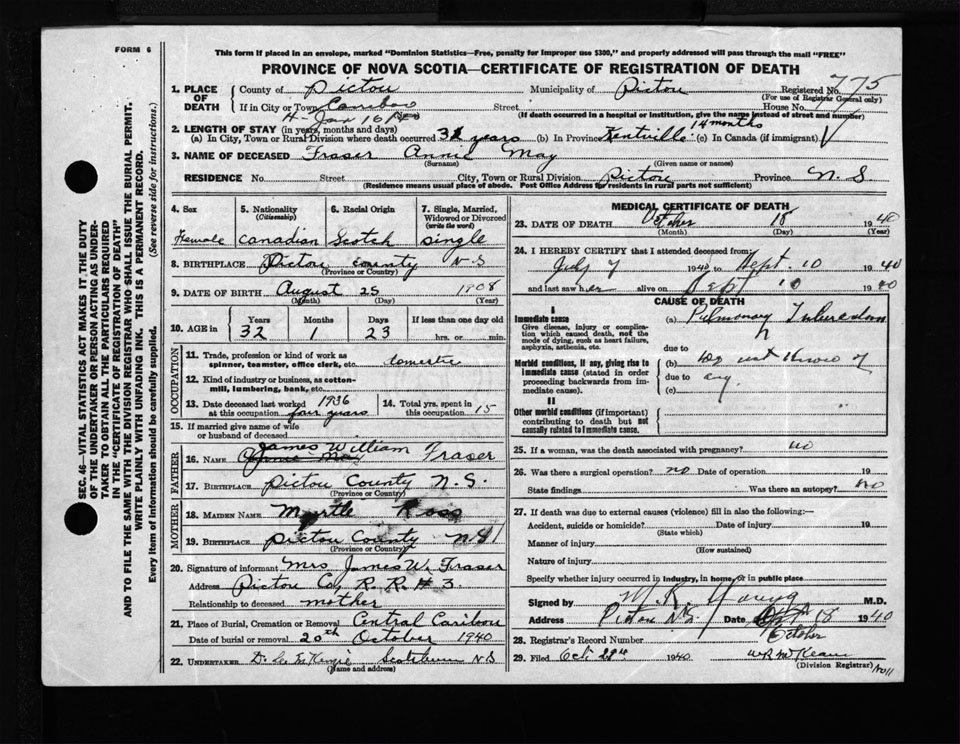 FORM 6
This form if placed in an envelope, marked "Dominion Statistics—Free, penalty for improper use $300," and properly addressed will pass through the mail "FREE"
PROVINCE OF NOVA SCOTIA—CERTIFICATE OF REGISTRATION OF DEATH
SEC. 46—VITAL STATISTICS ACT MAKES IT THE DUTY
OF THE UNDERTAKER OR PERSON ACTING AS UNDER-
TAKER TO OBTAIN ALL THE PARTICULARS REQUIRED
IN THE "CERTIFICATE OF REGISTRATION OF DEATH"
AND TO FILE THE SAME WITH THE DIVISION REGISTRAR WHO SHALL ISSUE THE BURIAL PERMIT.
WRITE PLAINLY WITH UNFADING INK. THIS IS A PERMANENT RECORD.
Every item of information should be carefully supplied. (See reverse side for instructions.)
1. PLACE OF DEATH
County of Pictou Municipality of Pictou Registered No. 775
(For use of Registrar General only)
If in City or Town Caribou Street House No.
(If death occurred in a hospital or institution, give the name instead of street and number)
H- Jan 16
2. LENGTH OF STAY (in years, months and days)
(a) In City, Town or Rural Division where death occurred 32 years (b) In Province Kentville 14 months (c) In Canada (if immigrant)
3. NAME OF DECEASED Fraser Annie May
(Surname) (Given name or names)
RESIDENCE No. Street City, Town or Rural Division Pictou Province N. S.
(Residence means usual place of abode. Post Office Address for residents in rural parts not sufficient)
4. Sex Female
5. Nationality (Citizenship) Canadian
6. Racial Origin Scotch
7. Single, Married, Widowed or Divorced (write the word) single
8. BIRTHPLACE Pictou County N-S
(Province or Country)
9. DATE OF BIRTH August 25 1908
(Month) (Day) (Year)
10. AGE in Years 32 Months 1 Days 23 If less than one day old hrs. or min.
OCCUPATION
11. Trade, profession or kind of work as spinner, teamster, office clerk, etc. domestic
12. Kind of industry or business, as cotton-mill, lumbering, bank, etc.
13. Date deceased last worked at this occupation 1936 four years
14. Total yrs. spent in this occupation 15
15. If married give name of wife or husband of deceased
FATHER
16. NAME James William Fraser
Annie May
17. BIRTHPLACE Pictou County N. S.
(Province or Country)
MOTHER
18. MAIDEN NAME Myrtle Ross
19. BIRTHPLACE Pictou County N.S
(Province or Country)
20. Signature of informant Mrs James W. Fraser
Address Pictou Co, R. R. # 3.
Relationship to deceased mother
21. Place of Burial, Cremation or Removal Central Caribou
Date of burial or removal 20th October 1940
22. UNDERTAKER Scotsburn N S
(Name and address)
MEDICAL CERTIFICATE OF DEATH
23. DATE OF DEATH October 18 1940
(Month) (Day) (Year)
24. I HEREBY CERTIFY that I attended deceased from:
July 7 1940 to Sept. 10 1940
and last saw her alive on Sept 10 1940
CAUSE OF DEATH
I
Immediate cause
Give disease, injury or complication which caused death, not the mode of dying, such as heart failure, asphyxia, asthenia, etc.
(a) Pulmonary
due to
Morbid conditions, if any, giving rise to immediate cause (stated in order proceeding backwards from immediate cause).
(b) Do not know of
due to any.
(c)
II
Other morbid conditions (if important) contributing to death but not causally related to immediate cause.
25. If a woman, was the death associated with pregnancy? no
26. Was there a surgical operation? no Date of operation 19
State findings Was there an autopsy? no
27. If death was due to external causes (violence) fill in also the following:—
Accident, suicide or homicide? Date of injury 19
(State which)
Manner of injury
(How sustained)
Nature of injury
Specify whether injury occurred in industry, in home, or in public place
Signed by M K Young M.D.
Address Pictou N.S. Date 18 1940
October
28. Registrar's Record Number
29. Filed Oct 1940 W R McKean
(Division Registrar)